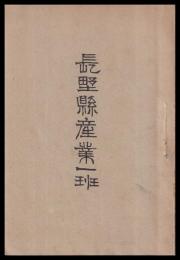 長野縣産業一班